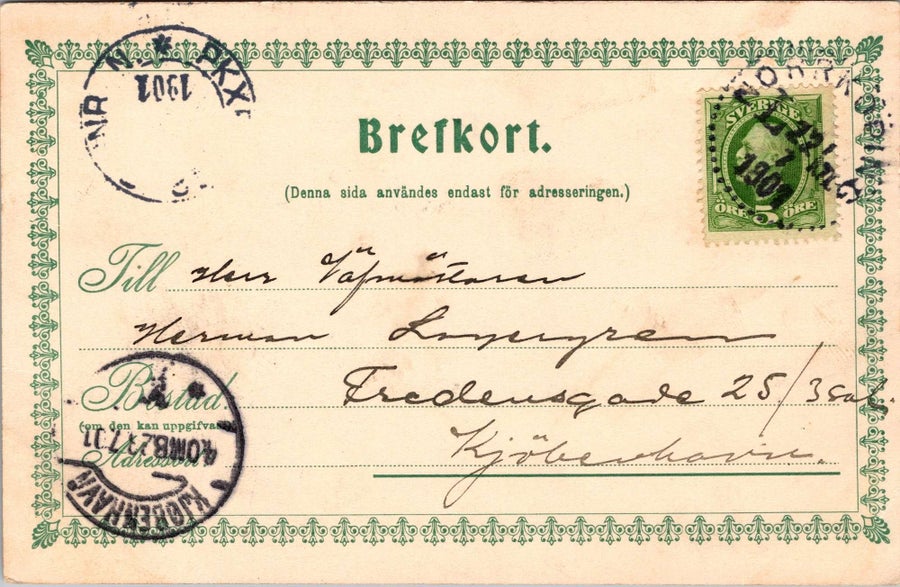 PKXP
NR N.
1901
Brefkort.
(Denna sida användes endast för adresseringen.)
NORRKÖPING
1901
SVERIGE
ÖRE 5 ÖRE
Till Herr Väfmästaren
Herman
Fredensgade 25/3 sal.
Bostad
(om den kan uppgifvas)
Kjöbenhavn.
Adressort
KJØBENHAVN
4 OMB 23.7.01